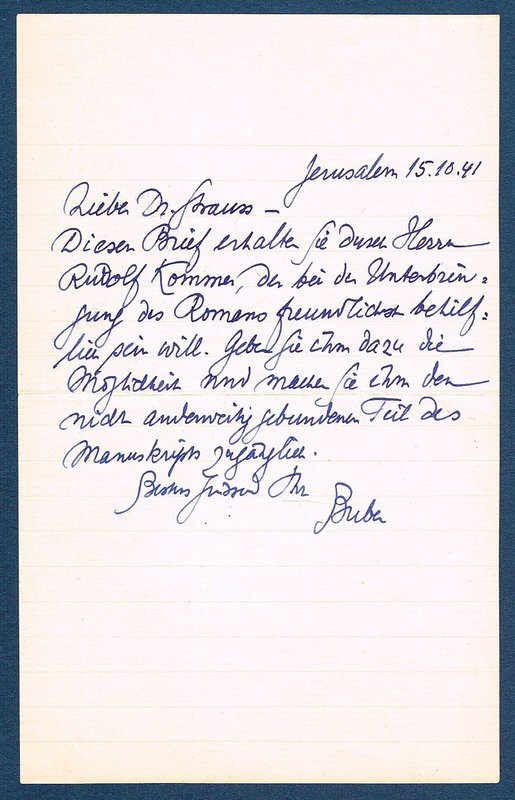 Jerusalem 15.10.41
Lieber Dr. Strauss –
Diesen Brief erhalten Sie durch Herrn
Rudolf Kommer, der bei der Unterbrin-
gung des Romans freundlichst behilf-
lich sein will. Geben Sie ihm dazu die
Möglichkeit und machen Sie ihm den
nicht anderweitig gebundenen Teil des
Manuskripts zugänglich.
Bestens grüssend Ihr
Buber